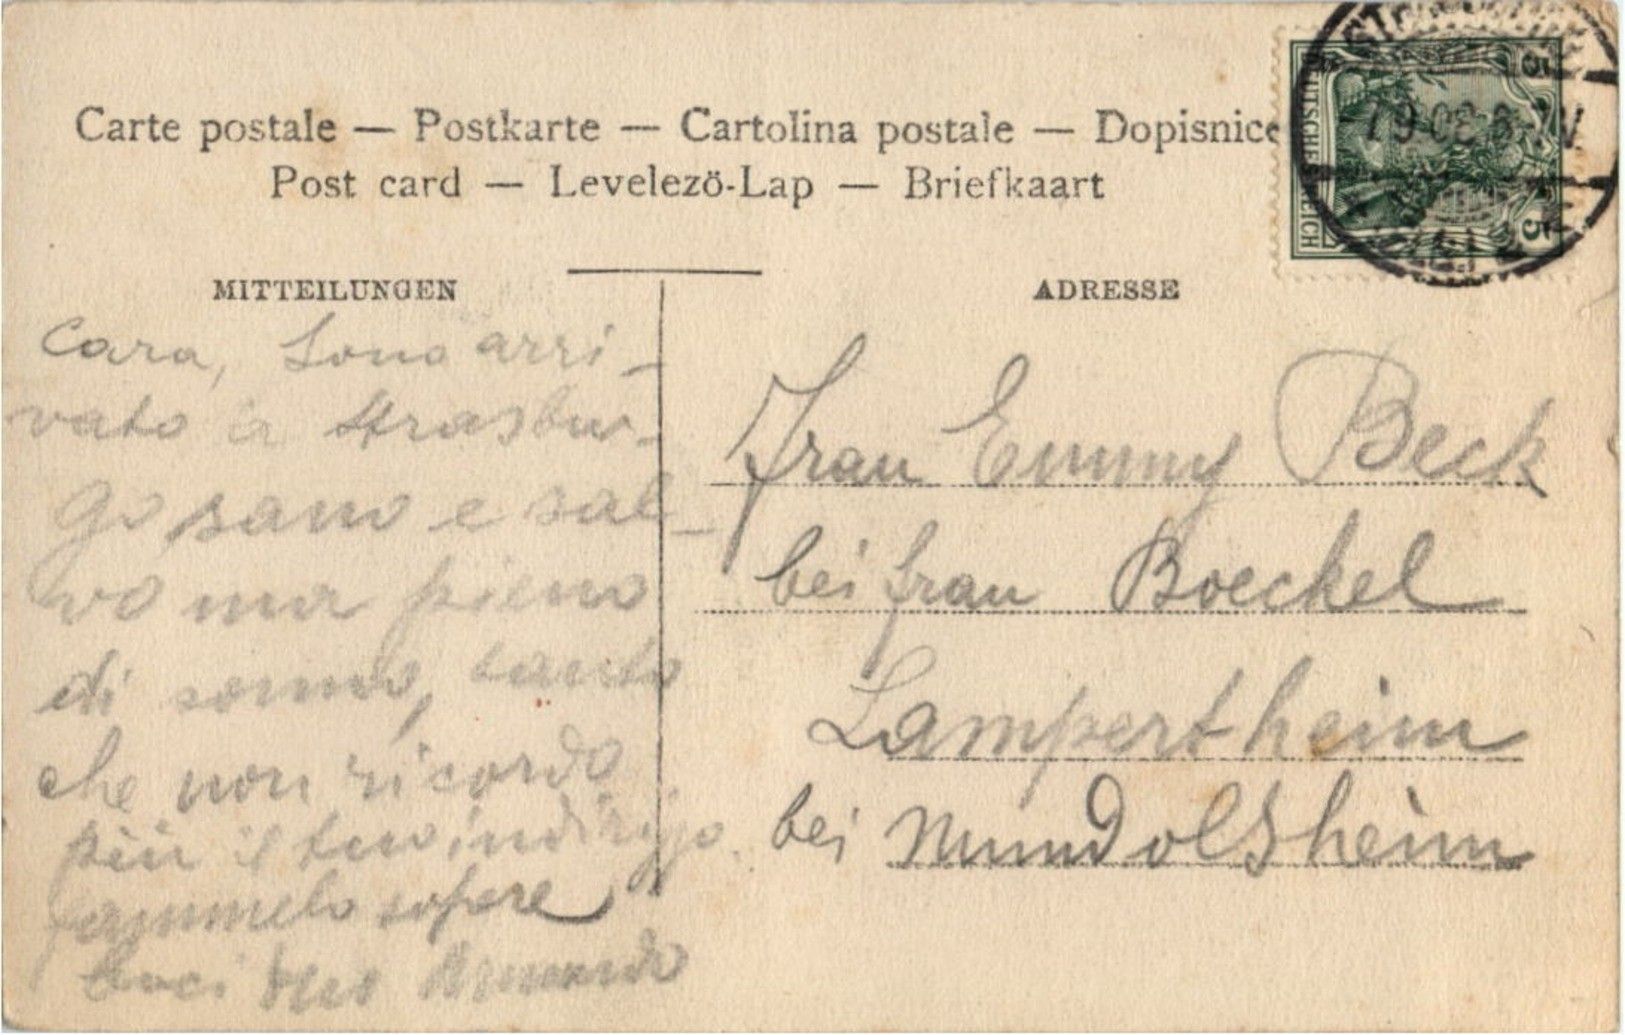 Carte postale — Postkarte — Cartolina postale — Dopisnice
Post card — Levelezö-Lap — Briefkaart
MITTEILUNGEN
Cara, Sono arri-
vato a Strasbur-
go sano e sal-
vo ma pieno
di sonno, tanto
che non ricordo
più il tuo indirizzo.
fammelo sapere
baci tuo Armando
ADRESSE
Frau Emmy Beck
bei Frau Boeckel
Lampertheim
bei Mundolsheim
DEUTSCHES REICH
5
5